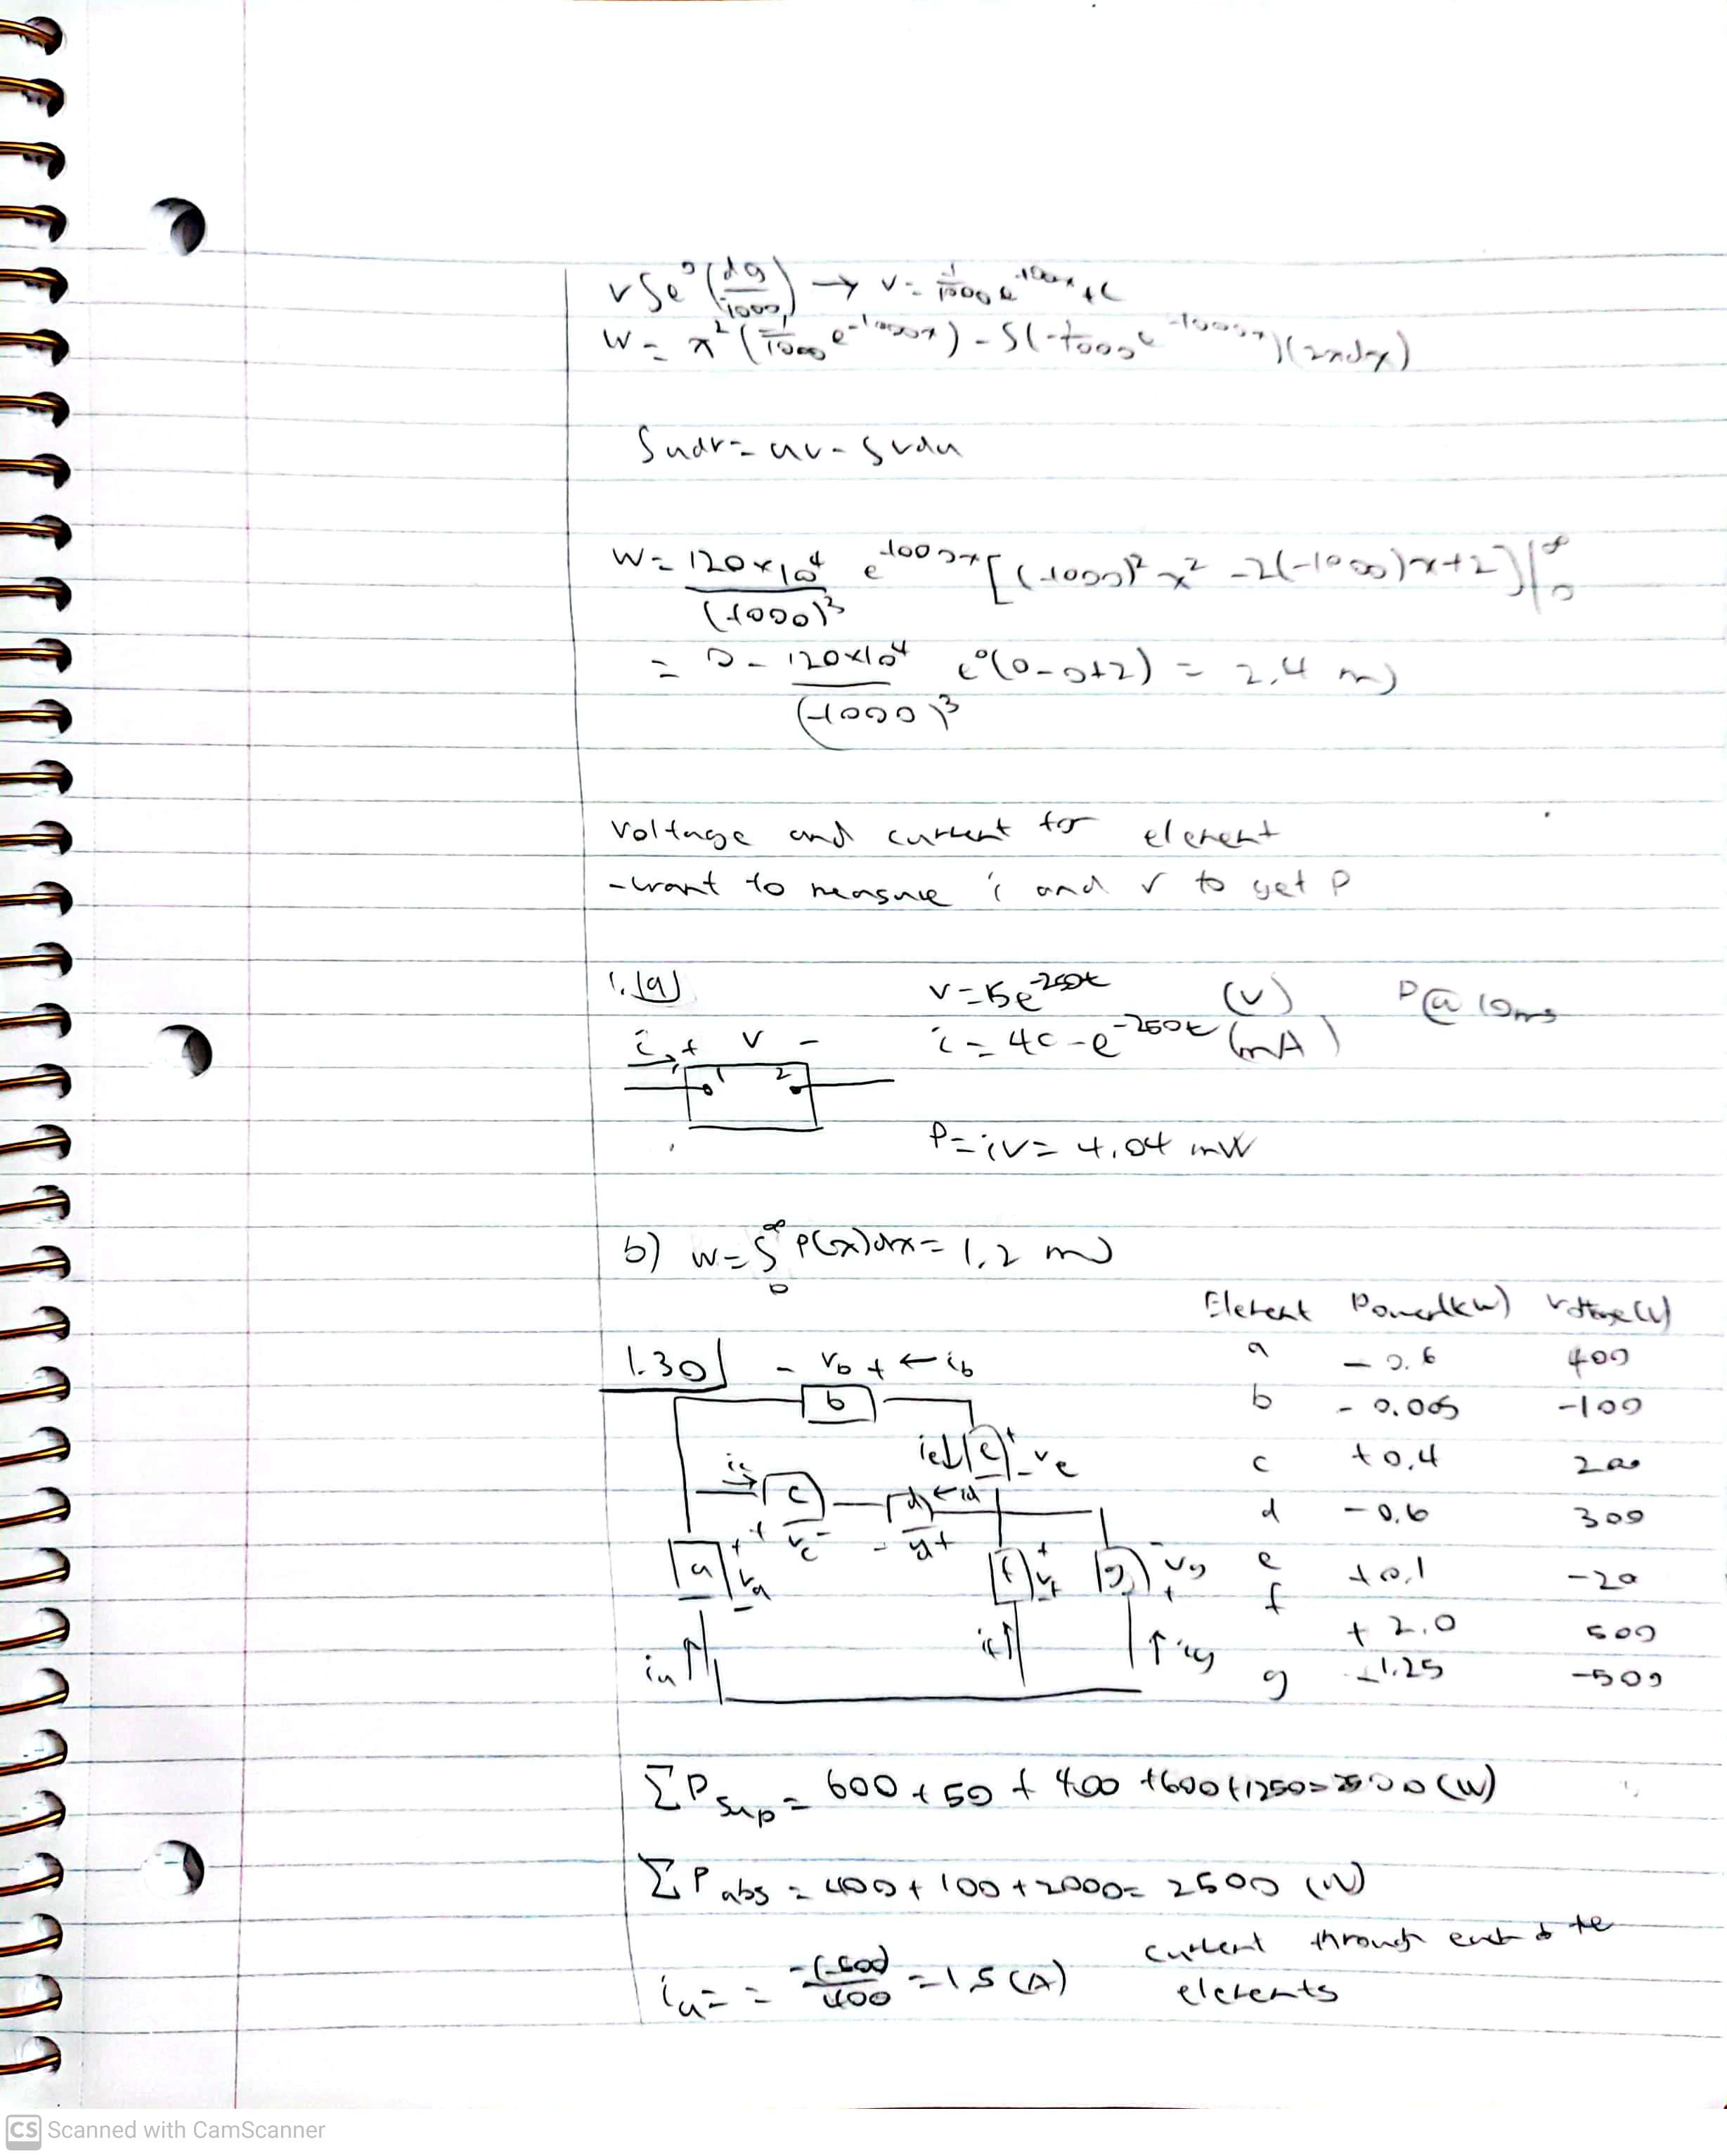 v∫e^g(dg/-1000) → v = -1/1000 e^-1000x + C
W = x²(-1/1000 e^-1000x) - ∫(-1/1000 e^-1000x)(2xdx)
∫udv = uv - ∫vdu
W = 120×10⁴/(-1000)³ e^-1000x [(-1000)²x² - 2(-1000)x + 2] |₀^∞
= 0 - 120×10⁴/(-1000)³ e⁰(0-0+2) = 2.4 mJ
voltage and current for element
- want to measure i and v to get P
1. (a)
v = 15e^-250t (V) P @ 10ms
i = 40 - e^-250t (mA)
i + v -
1 2
P = iv = 4.04 mW
b) w = ∫₀^∞ P(x)dx = 1.2 mJ
Element Power(kW) Voltage(V)
a - 0.6 400
b - 0.005 -100
c + 0.4 200
d - 0.6 300
e + 0.1 -20
f + 2.0 500
g - 1.25 -500
1.30
- vb + ← ib
b
ie↓ e + ve -
ic →
c
d ← id
+ vc -
- vd +
a + va -
f + vf -
g - vg +
ia ↑
if ↑
↑ ig
ΣP sup = 600 + 50 + 400 + 600 + 1250 = 2500 (W)
ΣP abs = 400 + 100 + 2000 = 2500 (W)
ia = = -(-600)/400 = 1.5 (A) current through each of the
elements
CS Scanned with CamScanner